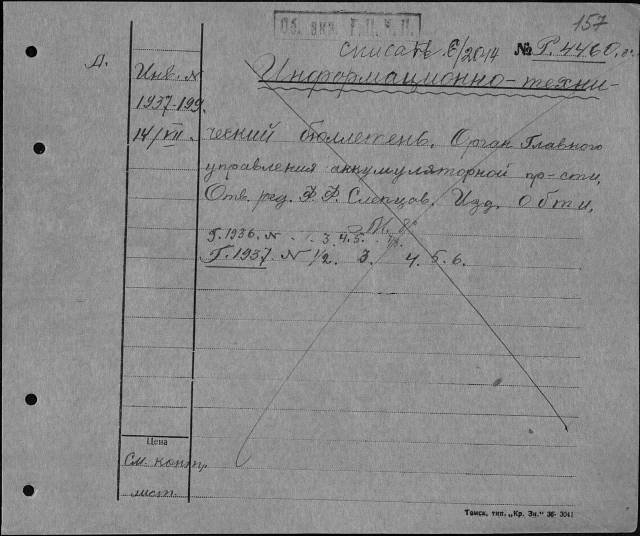 157
Об. акз. Т.П.У.П.
списать 6/20-14 № Р.4460.
Д.
Инв. N
1937-199.
14/VII
Информационно-техни-
ческий бюллетень. Орган Главного
управления аккумуляторной пр-сти,
Отв. ред. Ф. Ф. Слепцов. Изд. Обти,
М. 8°
Г. 1936. N 3. 4. 5.
Г. 1937. N 1/2. 3. 4. 5. 6.
Цена
См. контр.
лист.
Томск, тип. „Кр. Зн." 36- 3041